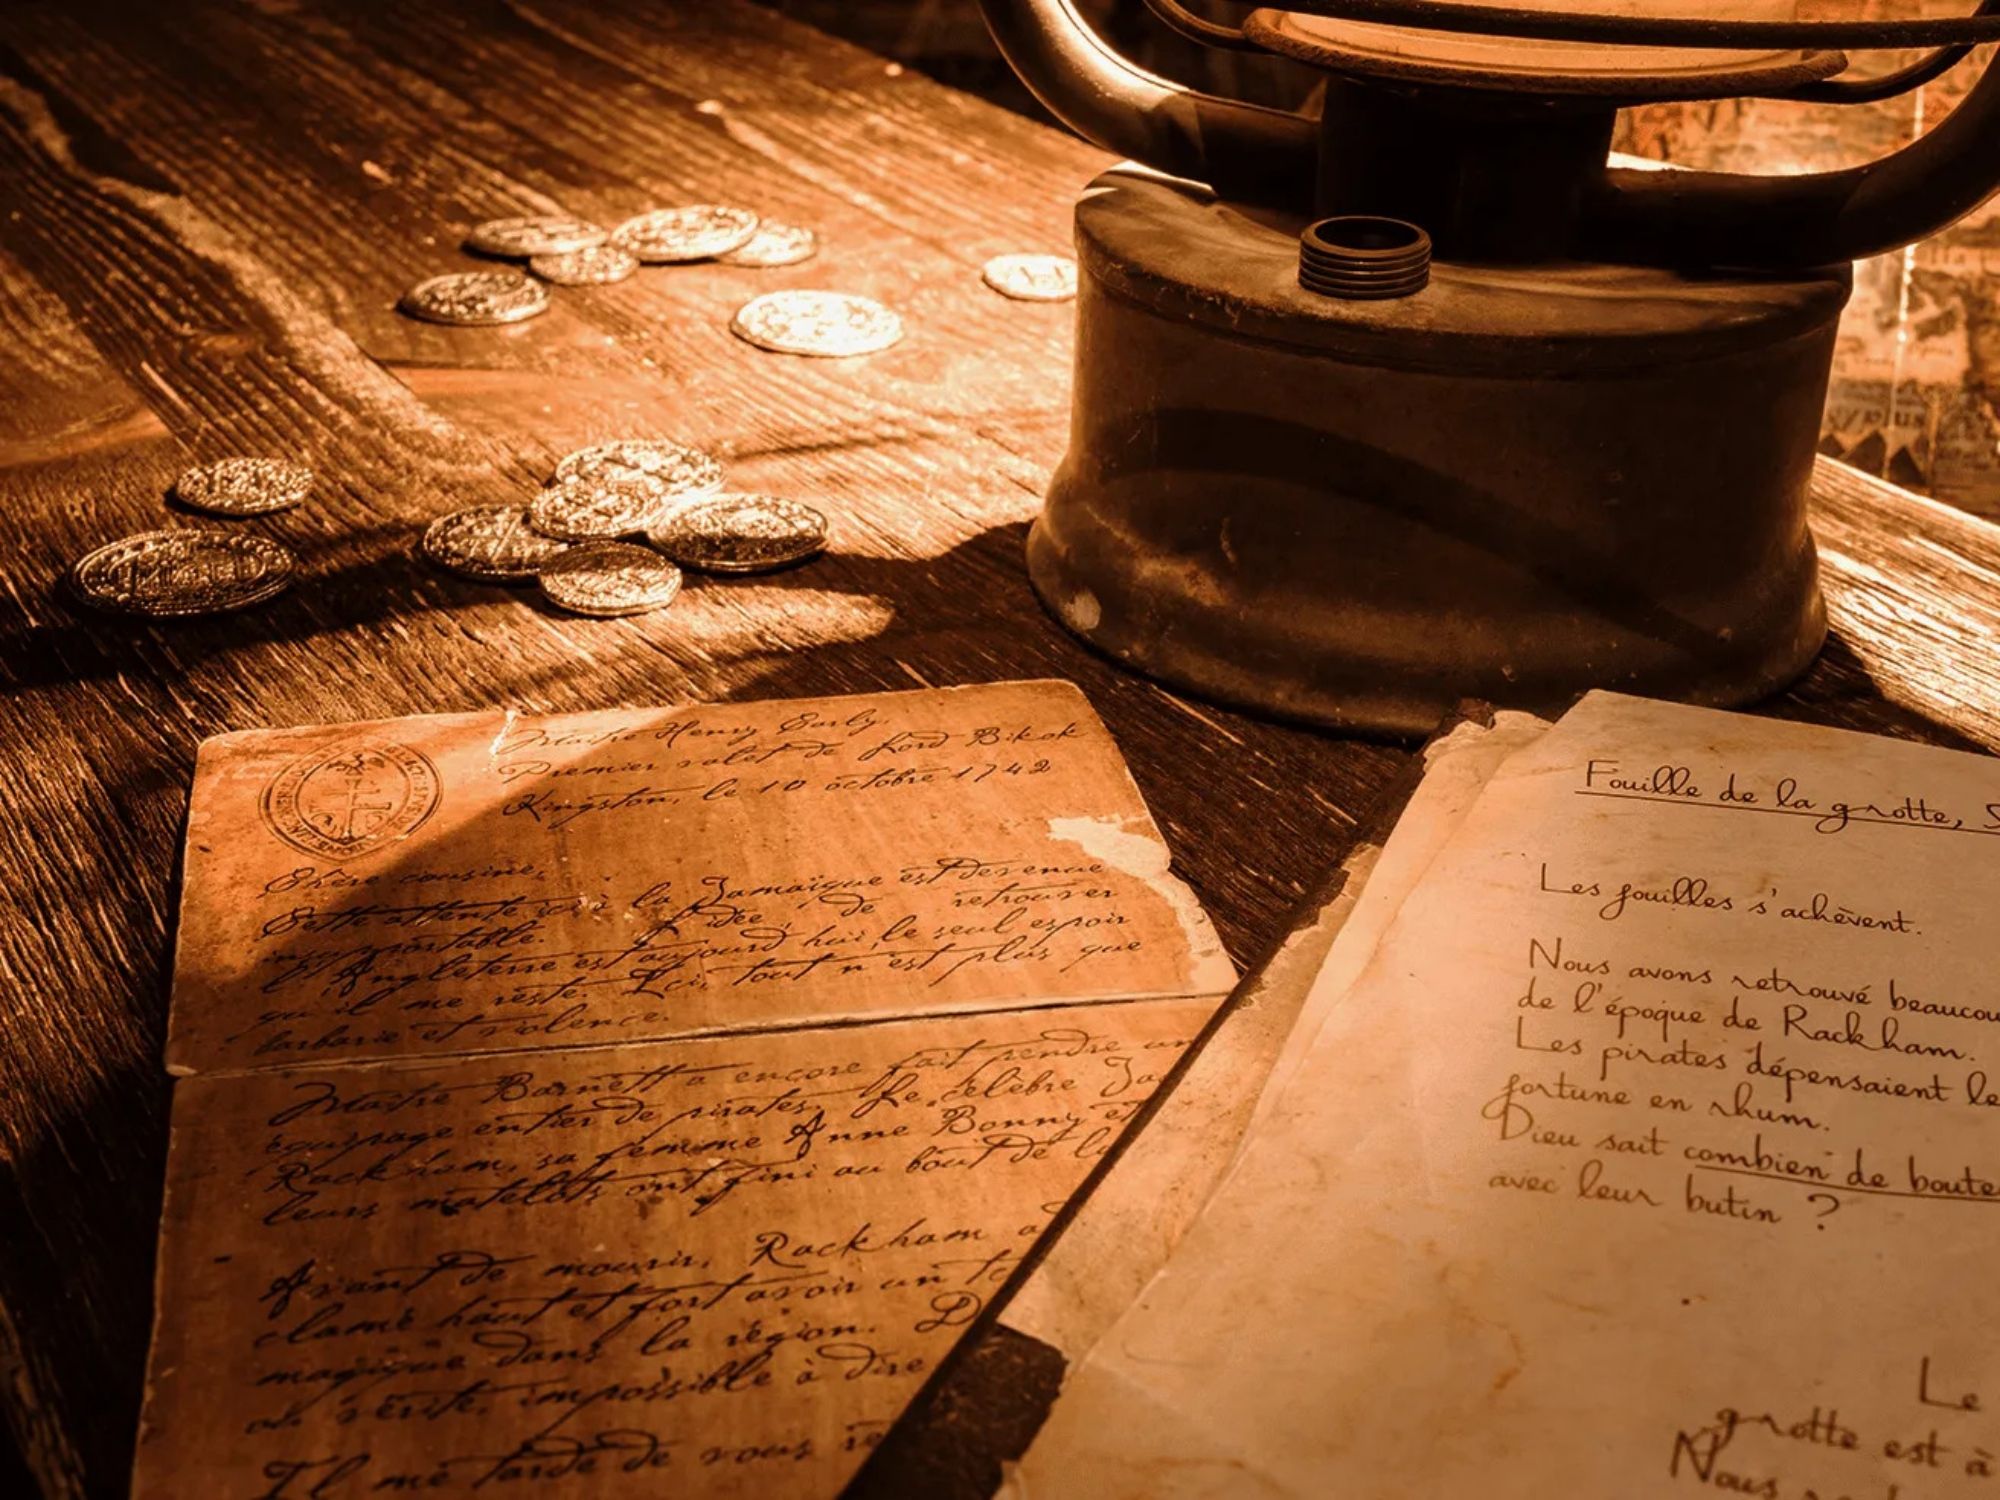 Maître Henry Early,
Premier valet de Lord Bikok
Kingston, le 10 octobre 1742
Chère cousine,
Cette attente ici à la Jamaïque est devenue
insupportable. L'idée de retrouver
l'Angleterre est aujourd'hui le seul espoir
qu'il me reste. Ici, tout n'est plus que
barbarie et violence.
Maître Barnett a encore fait pendre un
équipage entier de pirates. Le célèbre Ja
Rackham, sa femme Anne Bonny et
leurs matelots ont fini au bout de la
Avant de mourir, Rackham a
clamé haut et fort avoir un
magique dans la région. D
vérité, impossible à dire
Il me tarde de vous re
Fouille de la grotte, S
Les fouilles s'achèvent.
Nous avons retrouvé beaucou
de l'époque de Rackham.
Les pirates dépensaient le
fortune en rhum.
Dieu sait combien de boute
avec leur butin ?
Le
grotte est à
Nous